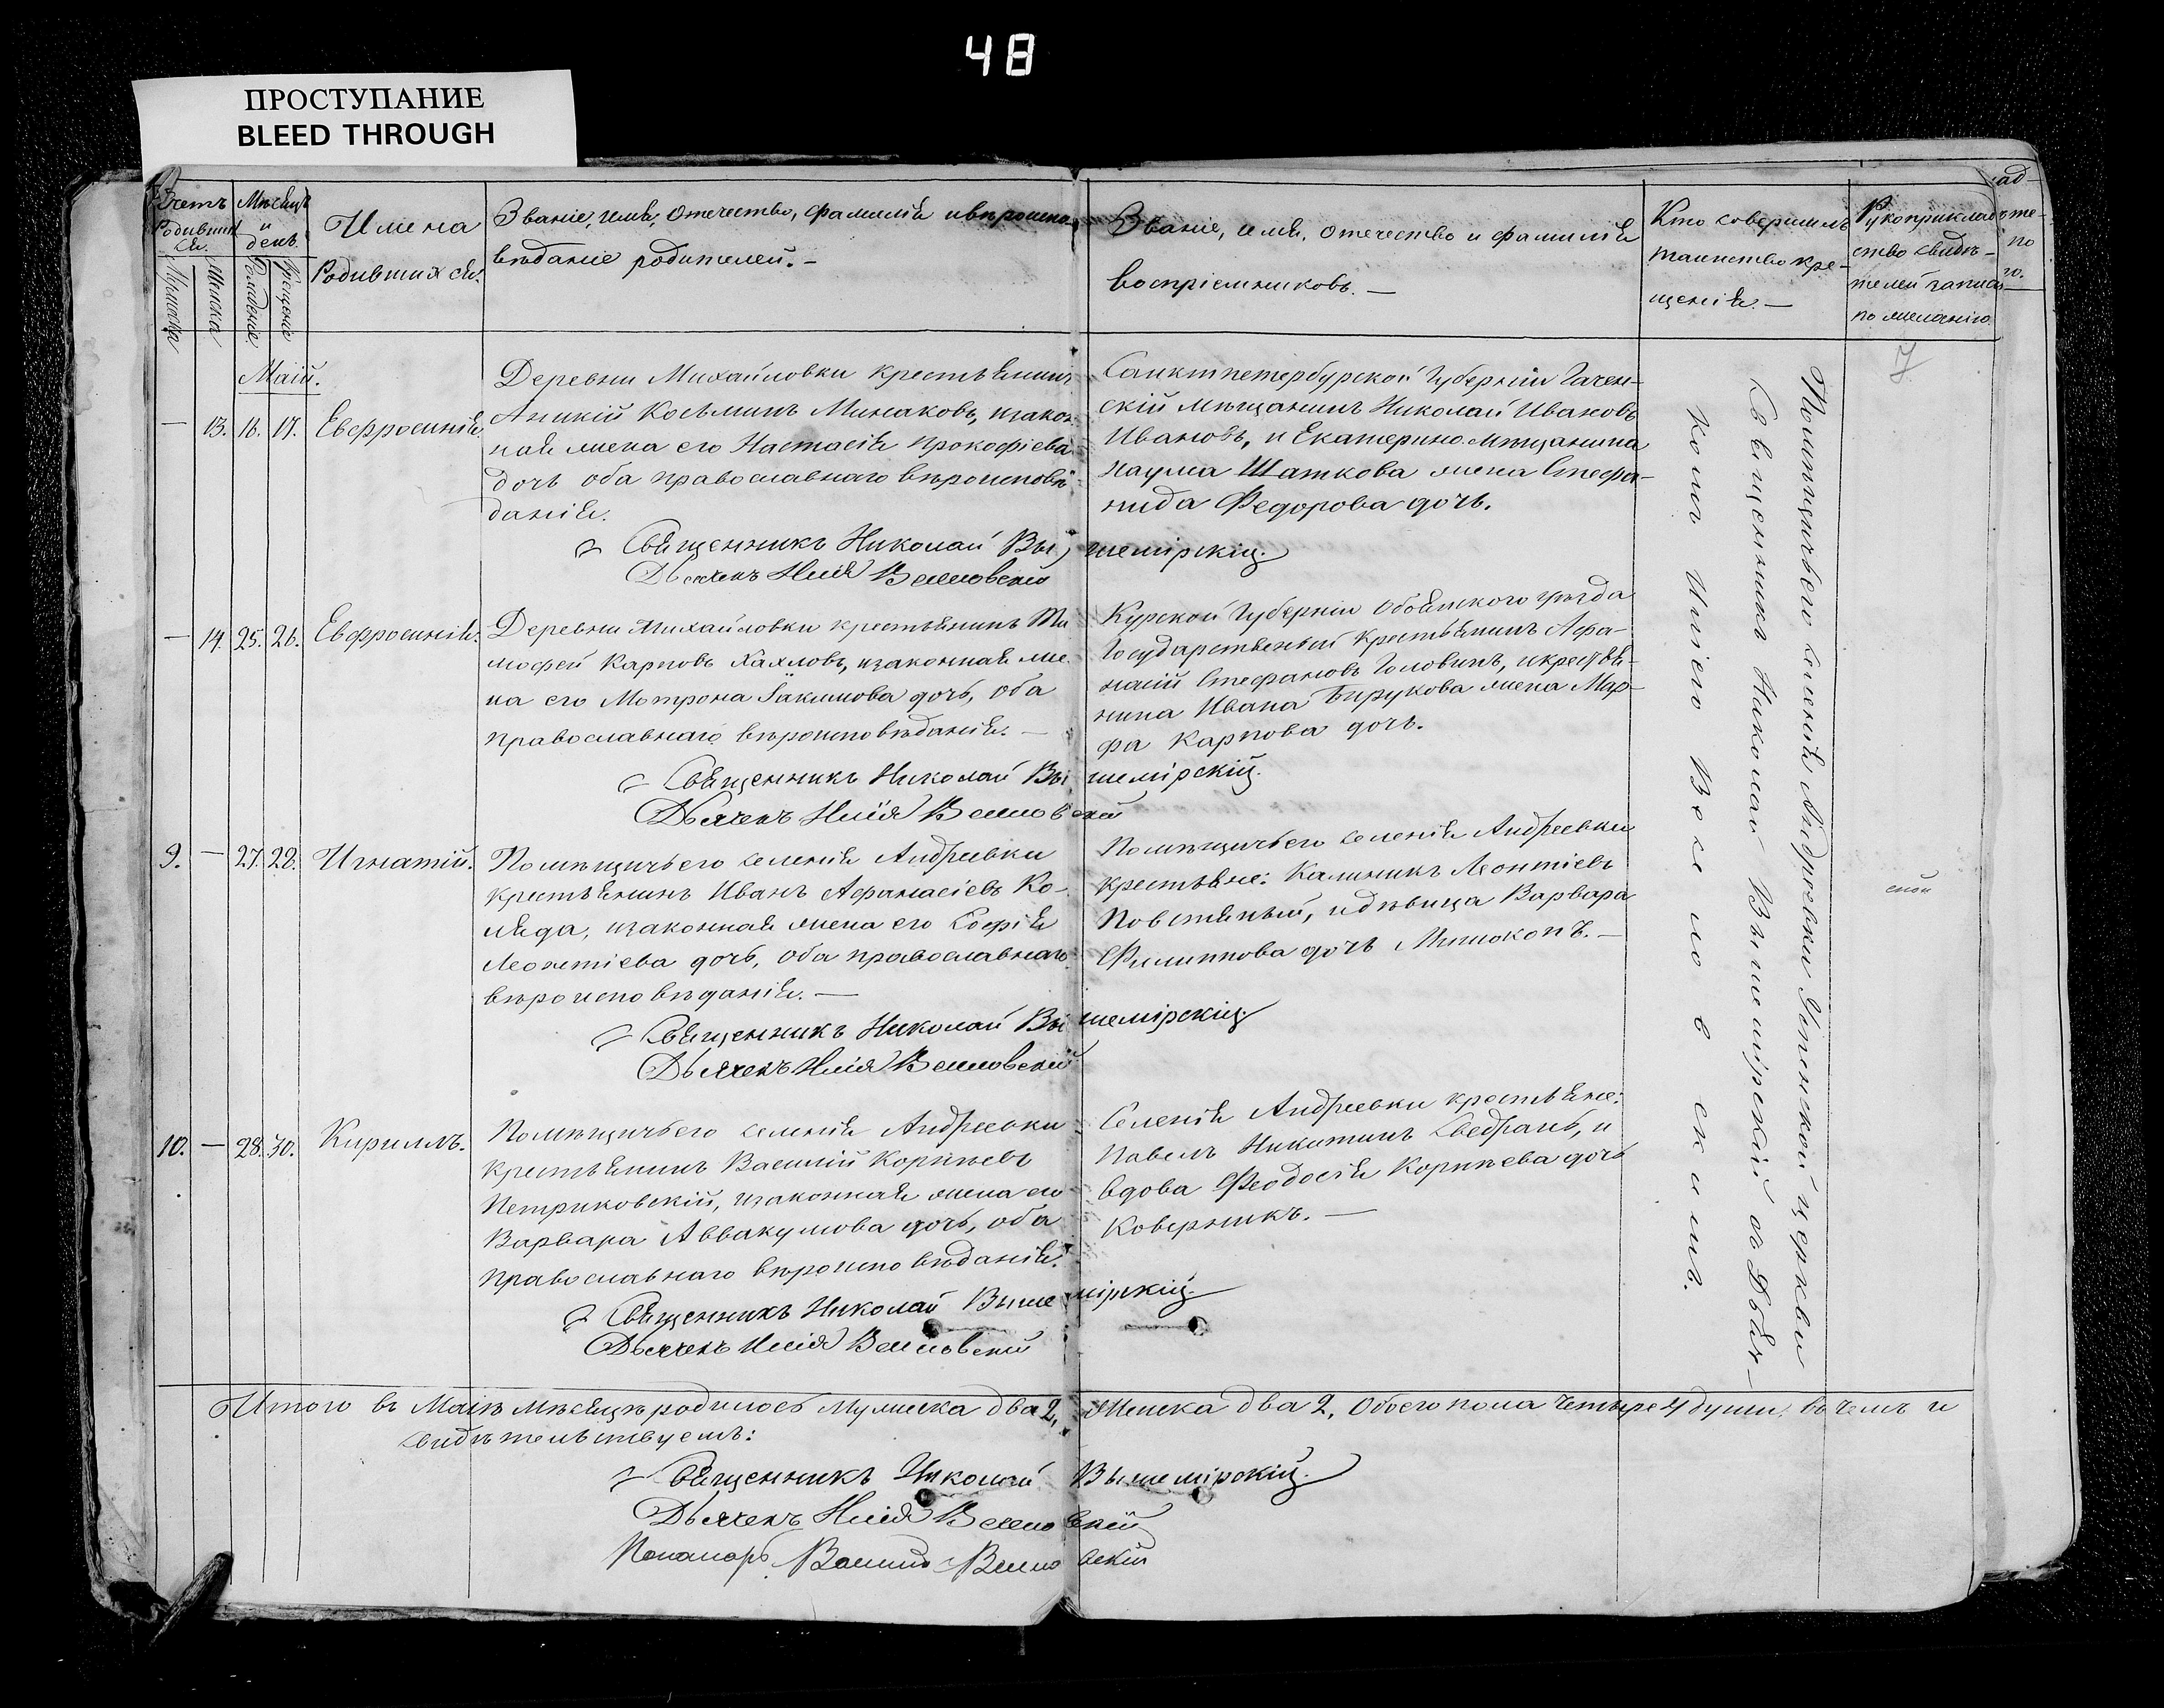 48
ПРОСТУПАНИЕ
BLEED THROUGH
Счетъ
Родивших
ся.
Мужеска
Женска
Мѣсяцъ
и
день.
Рожденіе
Крещеніе
Имена
Родившихся.
Званіе, имя, отечество, фамилія и вѣроиспо
вѣданіе родителей. —
Званіе, имя, отечество и фамилія
воспріемниковъ. —
Кто совершилъ
таинство кре-
щенія. —
Рукоприклад
ство свидѣ-
телей записи
по желанію.
7
Маій.
— 13. 16. 17. Евфросинія.
Деревни Михайловки крестьянинъ
Аникій Косьминъ Минаковъ, и закон
ная жена его Настасія Прокофіева
дочь оба православнаго вѣроисповѣ
данія.
Санктпетербурской Губерніи Гачен-
скій мѣщанинъ Николай Ивановъ
Ивановъ, и Екатерино. мѣщанина
Наума Шаткова жена Стефа-
нида Федорова дочь.
Священникъ Николай Вышемірскій.
Дьячекъ Илія Веселовскій
— 14. 25. 26. Евфросинія.
Деревни Михайловки крестьянинъ Ти
мофей Карповъ Хахловъ, и законная же
на его Мотрона Іакимова дочь, оба
православнаго вѣроисповѣданія. —
Курской Губерніи Обоянского уѣзда
Государственный крестьянинъ Афа-
насій Стефановъ Головинъ, и крестья-
нина Ивана Бирукова жена Мар-
фа Карпова дочь.
Священникъ Николай Вышемірскій.
Дьячекъ Илія Веселовскій
9. — 27. 28. Игнатій.
Помѣщичьего селенія Андреевки
крестьянинъ Иванъ Афанасіевъ Ко-
ляда, и законная жена его Софія
Леонтіева дочь, оба православнаго
вѣроисповѣданія. —
Помѣщичьего селенія Андреевки
крестьяне: Калиникъ Леонтіевъ
Повстяный, и дѣвица Варвара
Филиппова дочь —
Священникъ Николай Вышемірскій
Дьячекъ Илія Веселовскій
10. — 28. 30. Кириллъ.
Помѣщичьего селенія Андреевки
крестьянинъ Василій Корнѣевъ
Петриковскій, и законная жена его
Варвара Аввакумова дочь, оба
православнаго вѣроисповѣданія.
Селенія Андреевки крестьяне:
Павелъ Никитинъ Сведранъ, и
вдова Феодосія Корнѣева дочь
Коверникъ. —
Священникъ Николай Вышемірскій.
Дьячекъ Илія Веселовскій
Помѣщичьего селенія Андреевки Успенской церкви
Священникъ Николай Вышемірскій съ Дьяч-
комъ Иліею Веселовскимъ.
Итого въ Маіѣ мѣсяцѣ родилось Мужеска два 2, Женска два 2, Обоего пола Четыре 4 души, въ чемъ и
свидѣтельствуемъ:
Священникъ Николай Вышемірскій.
Дьячекъ Илія Веселовскій
Пономарь Василій Веселовскій